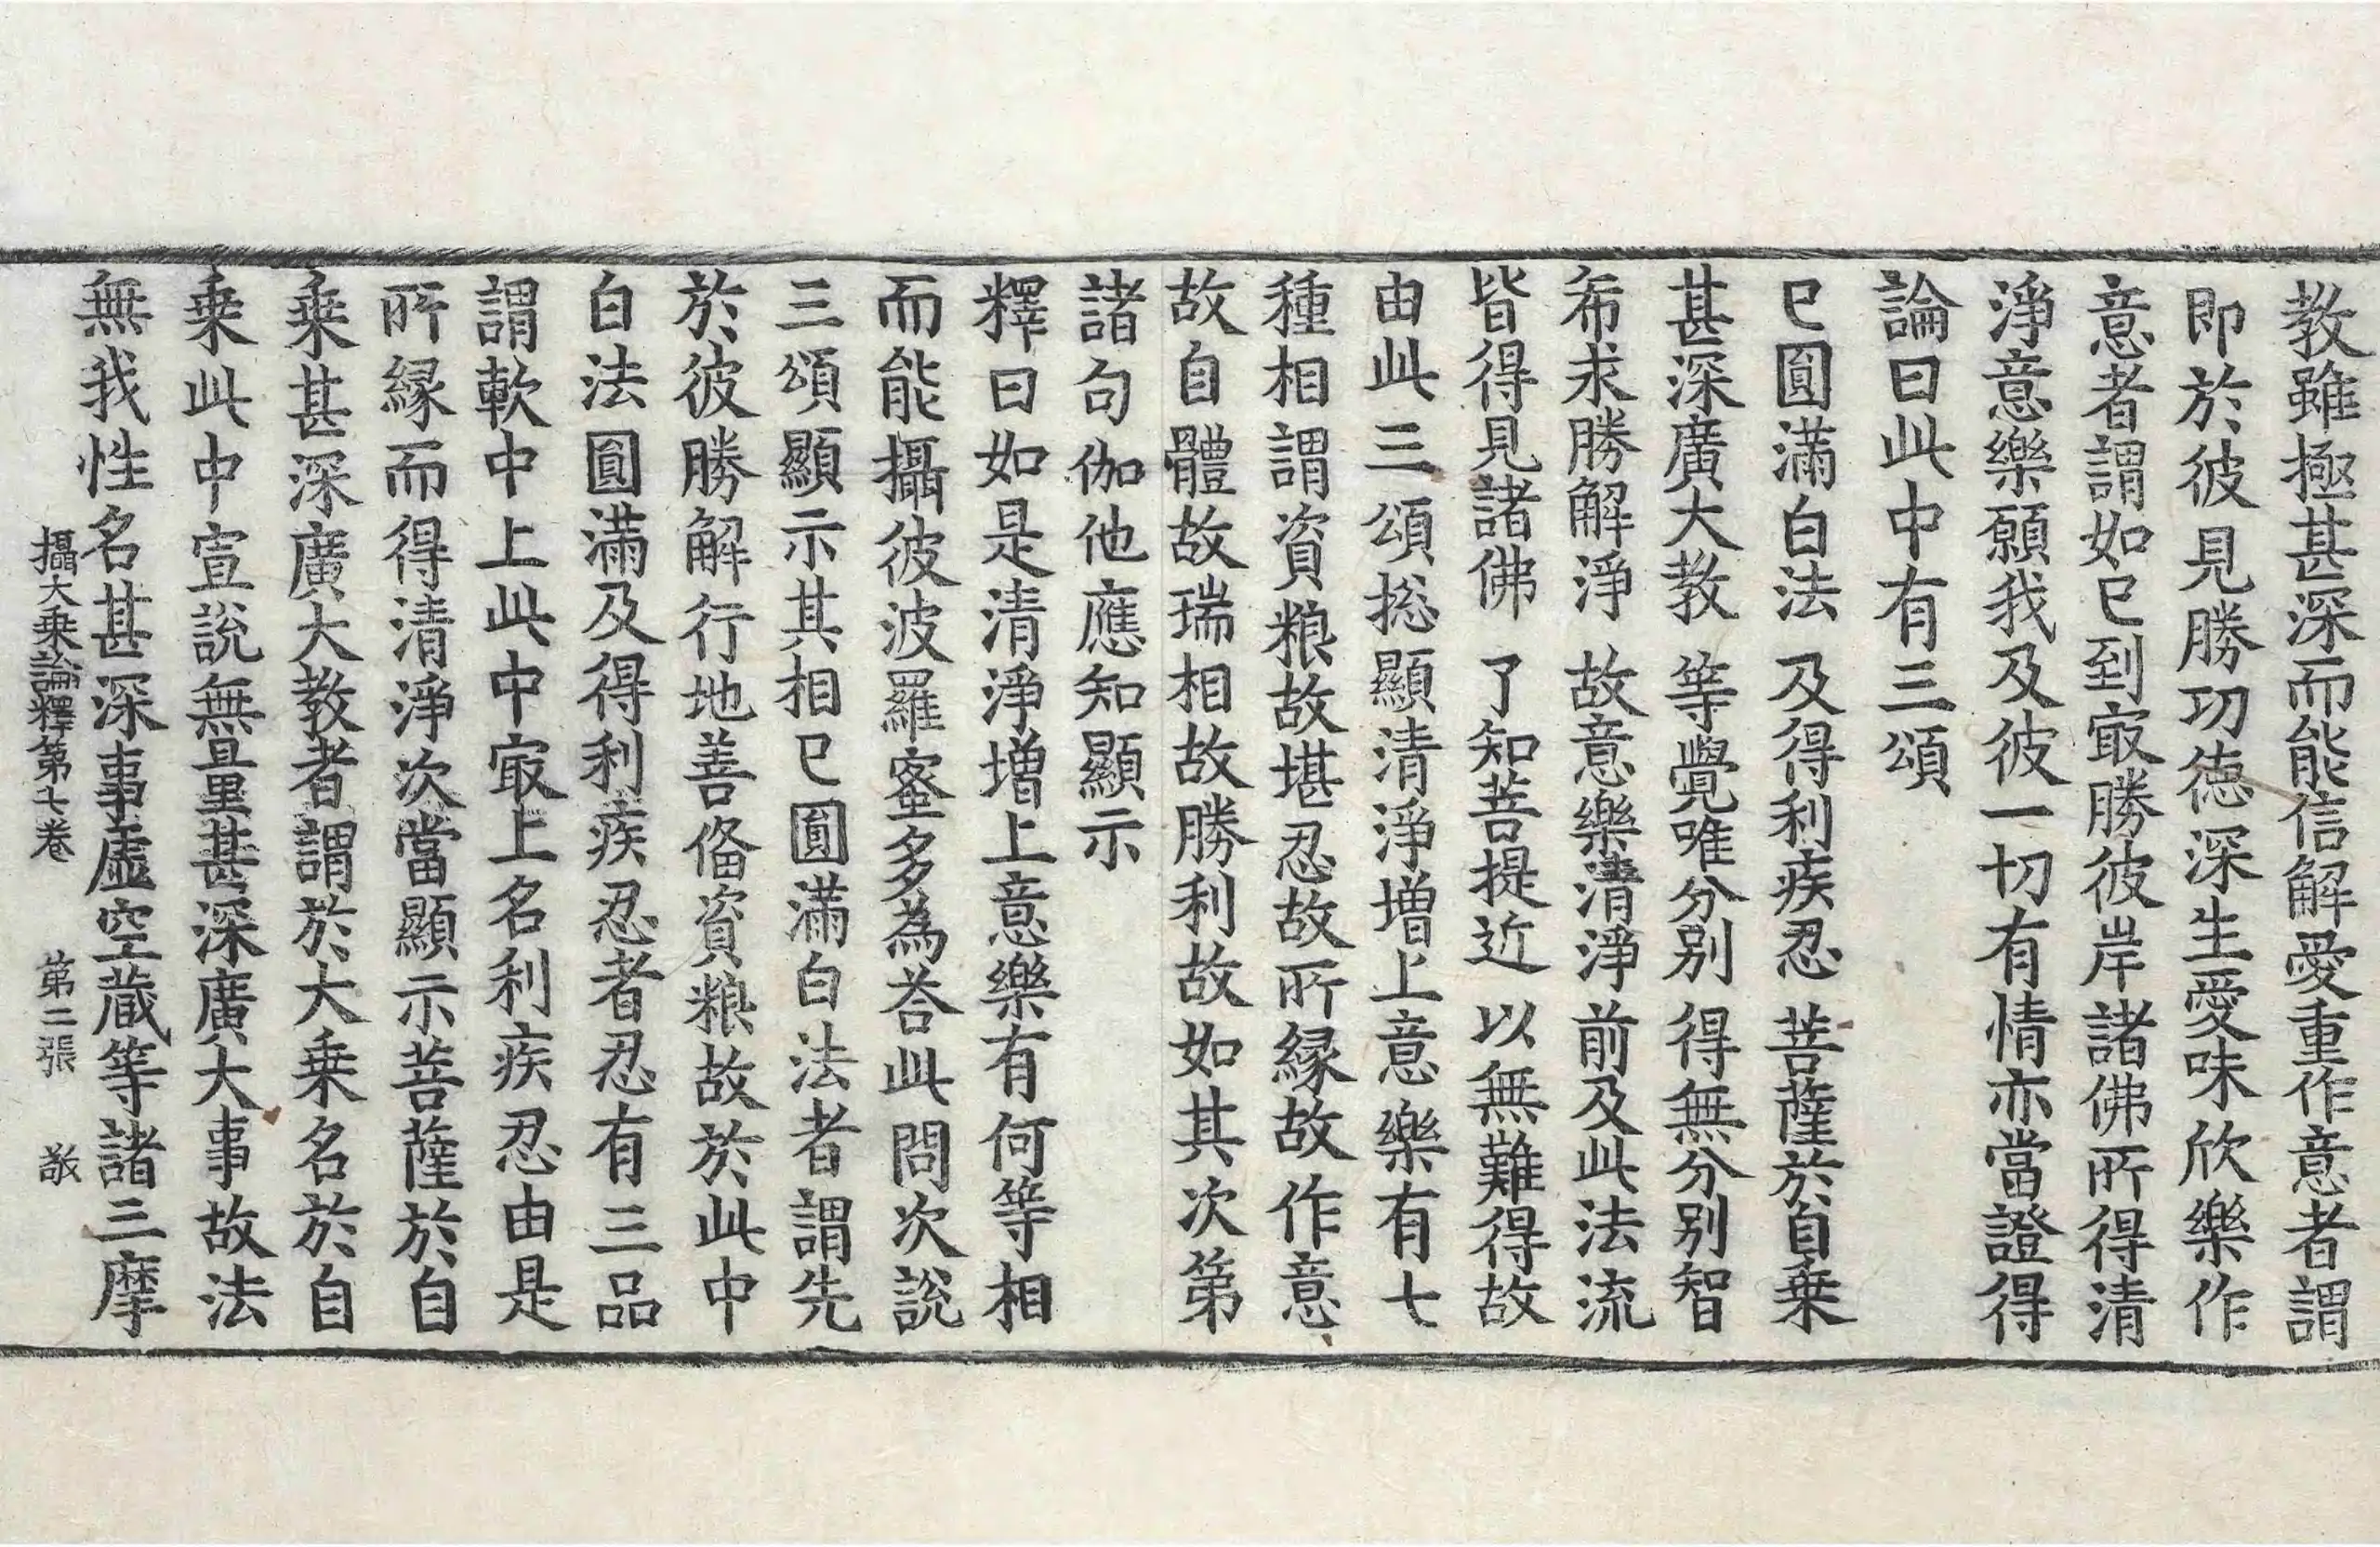 教雖極甚深而能信解愛重作意者謂
即於彼見勝功德深生愛味欣樂作
意者謂如已到㝡勝彼岸諸佛所得清
淨意樂願我及彼一切有情亦當證得
論曰此中有三頌
已圓滿白法　及得利疾忍　菩薩於自乗
甚深廣大教　等覺唯分別　得無分別智
希求勝解淨　故意樂清淨　前及此法流
皆得見諸佛　了知菩提近　以無難得故
由此三頌揔顯清淨增上意樂有七
種相謂資粮故堪忍故所緣故作意
故自體故瑞相故勝利故如其次第
諸句伽他應知顯示
釋曰如是清淨增上意樂有何等相
而能攝彼波羅蜜多為荅此問次說
三頌顯示其相已圓滿白法者謂先
於彼勝解行地善俻資粮故於此中
白法圓滿及得利疾忍者忍有三品
謂軟中上此中㝡上名利疾忍由是
所緣而得清淨次當顯示菩薩於自
乗甚深廣大教者謂於大乗名於自
乗此中宣說無量甚深廣大事故法
無我性名甚深事虛空藏等諸三摩
攝大乗論釋第七卷　第二張　敬